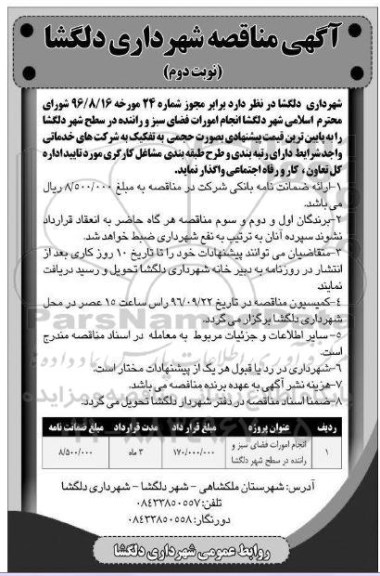 آگهی مناقصه شهرداری دلگشا
(نوبت دوم)
شهرداری دلگشا در نظر دارد برابر مجوز شماره ۲۴ مورخه ۹۶/۸/۱۶ شورای
محترم اسلامی شهر دلگشا انجام امورات فضای سبز و راننده در سطح شهر دلگشا
را به پایین ترین قیمت پیشنهادی بصورت حجمی به تفکیک به شرکت های خدماتی
واجد شرایط دارای رتبه بندی و طرح طبقه بندی مشاغل کارگری مورد تایید اداره
کل تعاون ، کار و رفاه اجتماعی واگذار نماید.
۱-ارائه ضمانت نامه بانکی شرکت در مناقصه به مبلغ ۸/۵۰۰/۰۰۰ ریال
می باشد.
۲-برندگان اول و دوم و سوم مناقصه هر گاه حاضر به انعقاد قرارداد
نشوند سپرده آنان به ترتیب به نفع شهرداری ضبط خواهد شد.
۳-متقاضیان می توانند پیشنهادات خود را تا تاریخ ۱۰ روز کاری بعد از
انتشار در روزنامه به دبیر خانه شهرداری دلگشا تحویل و رسید دریافت
نمایند
۴-کمیسیون مناقصه در تاریخ ۹۶/۰۹/۲۲ راس ساعت ۱۵ عصر در محل
شهرداری دلگشا برگزار می گردد.
۵- سایر اطلاعات و جزئیات مربوط به معامله در اسناد مناقصه مندرج
است.
۶-شهرداری در رد یا قبول هر یک از پیشنهادات مختار است.
۷-هزینه نشر آگهی به عهده برنده مناقصه می باشد.
۸-ضمنا اسناد مناقصه در دفتر شهردار دلگشا تحویل می گردد.
ردیف عنوان پروژه مبلغ قرار داد مدت قرارداد مبلغ ضمانت نامه
۱ انجام امورات فضای سبز و راننده در سطح شهر دلگشا ۱۷۰/۰۰۰/۰۰۰ ۳ ماه ۸/۵۰۰/۰۰۰
آدرس: شهرستان ملکشاهی - شهر دلگشا - شهرداری دلگشا
تلفن: ۰۸۴۳۳۸۵۰۵۵۷
دورنگار: ۰۸۴۳۳۸۵۰۵۵۸
روابط عمومی شهرداری دلگشا